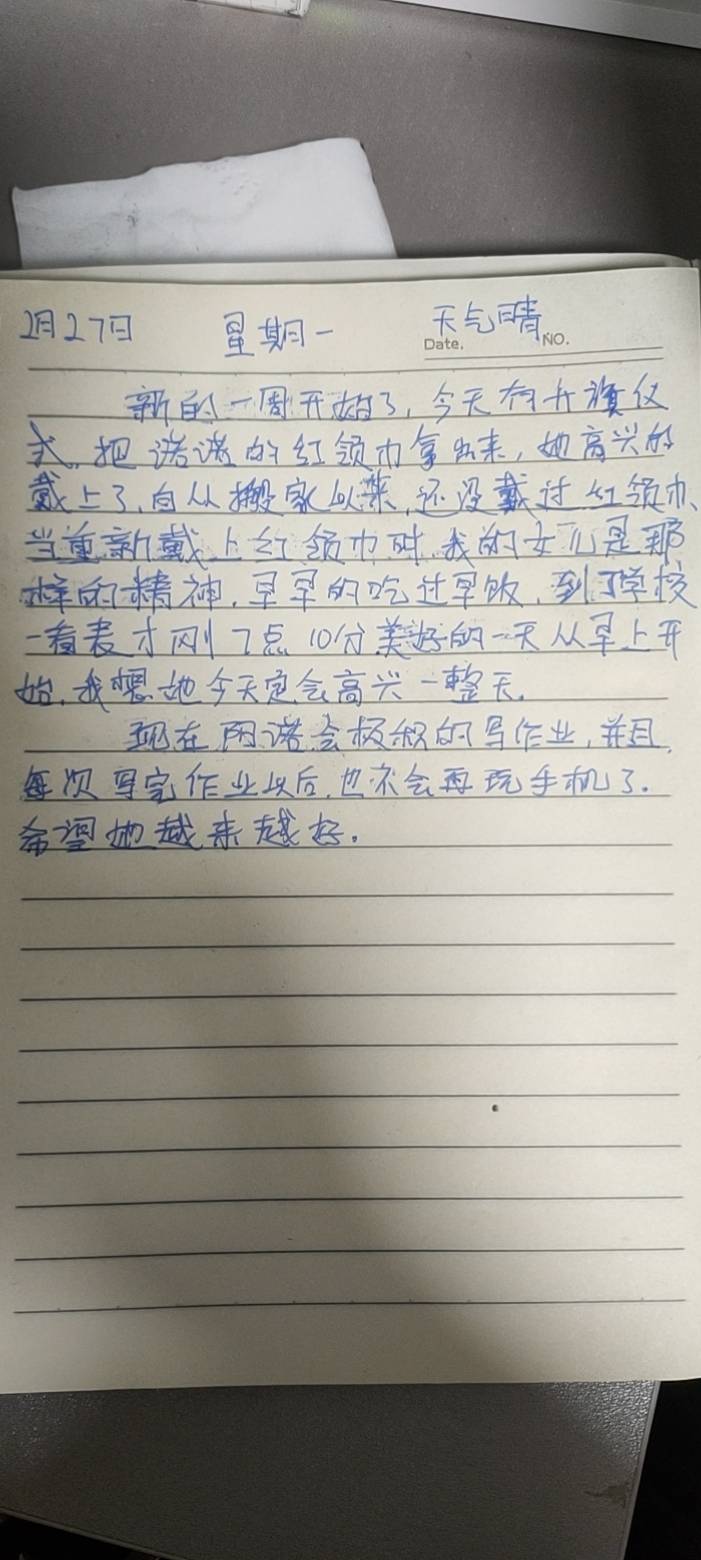 2月27日 星期一 天气晴
Date. NO.
新的一周开始了，今天有升旗仪
式，把诺诺的红领巾拿出来，她高兴的
戴上了，自从搬家以来，还没戴过红领巾、
当重新戴上红领巾时，我的女儿是那
样的精神，早早的吃过早饭，到了学校
一看表才刚7点10分美好的一天从早上开
始，我想她今天定会高兴一整天。
现在阳诺会极积的写作业，并且，
每次写完作业以后，也不会再玩手机了。
希望她越来越好。